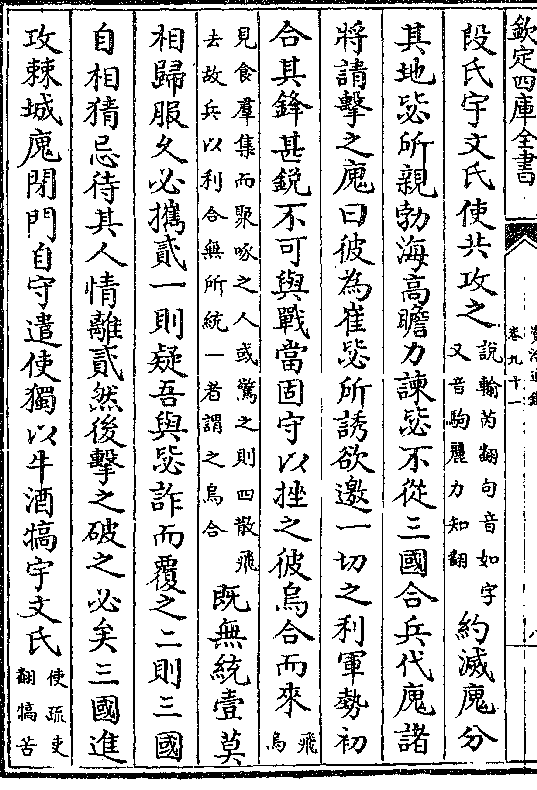 欽定四庫全書
卷九十一
段氏宇文氏使共攻之説輸芮翻句音如字又音駒麗力知翻約滅廆分
其地毖所親勃海高瞻力諫毖不從三國合兵伐廆諸
將請擊之廆曰彼為崔毖所誘欲邀一切之利軍勢初
合其鋒甚鋭不可與戰當固守以挫之彼烏合而來飛烏
見食羣集而聚啄之人或驚之則四散飛去故兵以利合無所統一者謂之烏合既無統壹莫
相歸服久必攜貳一則疑吾與毖詐而覆之二則三國
自相猜忌待其人情離貳然後擊之破之必矣三國進
攻棘城廆閉門自守遣使獨以牛酒犒宇文氏使疏吏翻犒苦